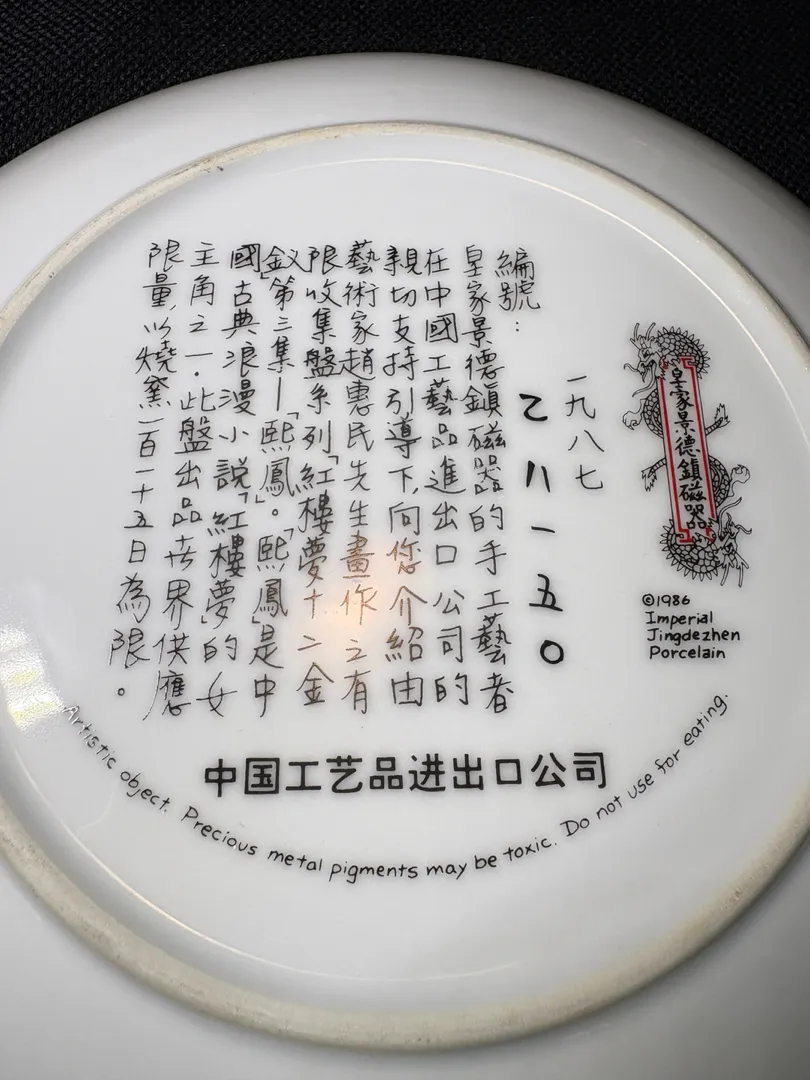 皇家景德鎮磁器
©1986
Imperial
Jingdezhen
Porcelain
一九八七
乙八一五〇
編號：
皇家景德鎮磁器的手工藝者
在中國工藝品進出口公司的
親切支持引導下,向您介紹由
藝術家趙惠民先生畫作之有
限收集盤系列「紅樓夢十二金
釵」第三集—「熙鳳」。「熙鳳」是中
國古典浪漫小說「紅樓夢」的女
主角之一.此盤出品世界供應
限量,以燒窯一百一十五日為限。
中国工艺品进出口公司
Artistic object. Precious metal pigments may be toxic. Do not use for eating.